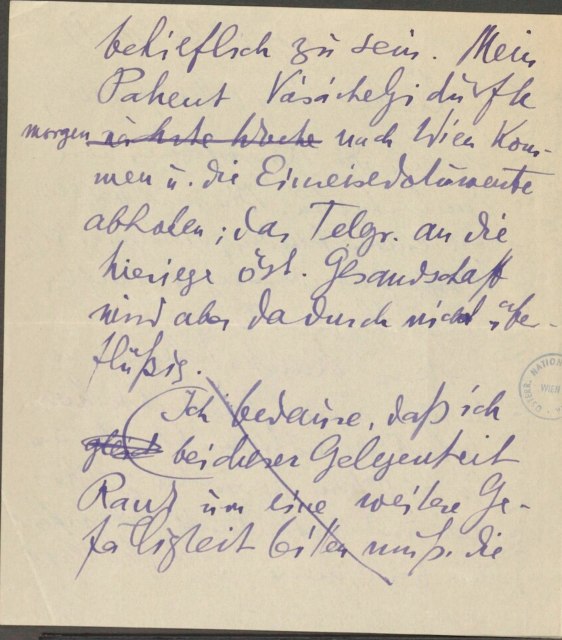 behieflich zu sein. Mein
Patient Vásárhelyi dürfte
morgen nächste Woche nach Wien kom-
men u. die Einreisedokumente
abholen; das Telgr. an die
hiesige öst. Gesandschaft
wird aber dadurch nicht über-
flüßig.
Ich bedaure, daß ich
gleich bei dieser Gelegenheit
um eine weitere Ge-
fälligkeit bitten muß. die
ÖSTERR. NATION
WIEN